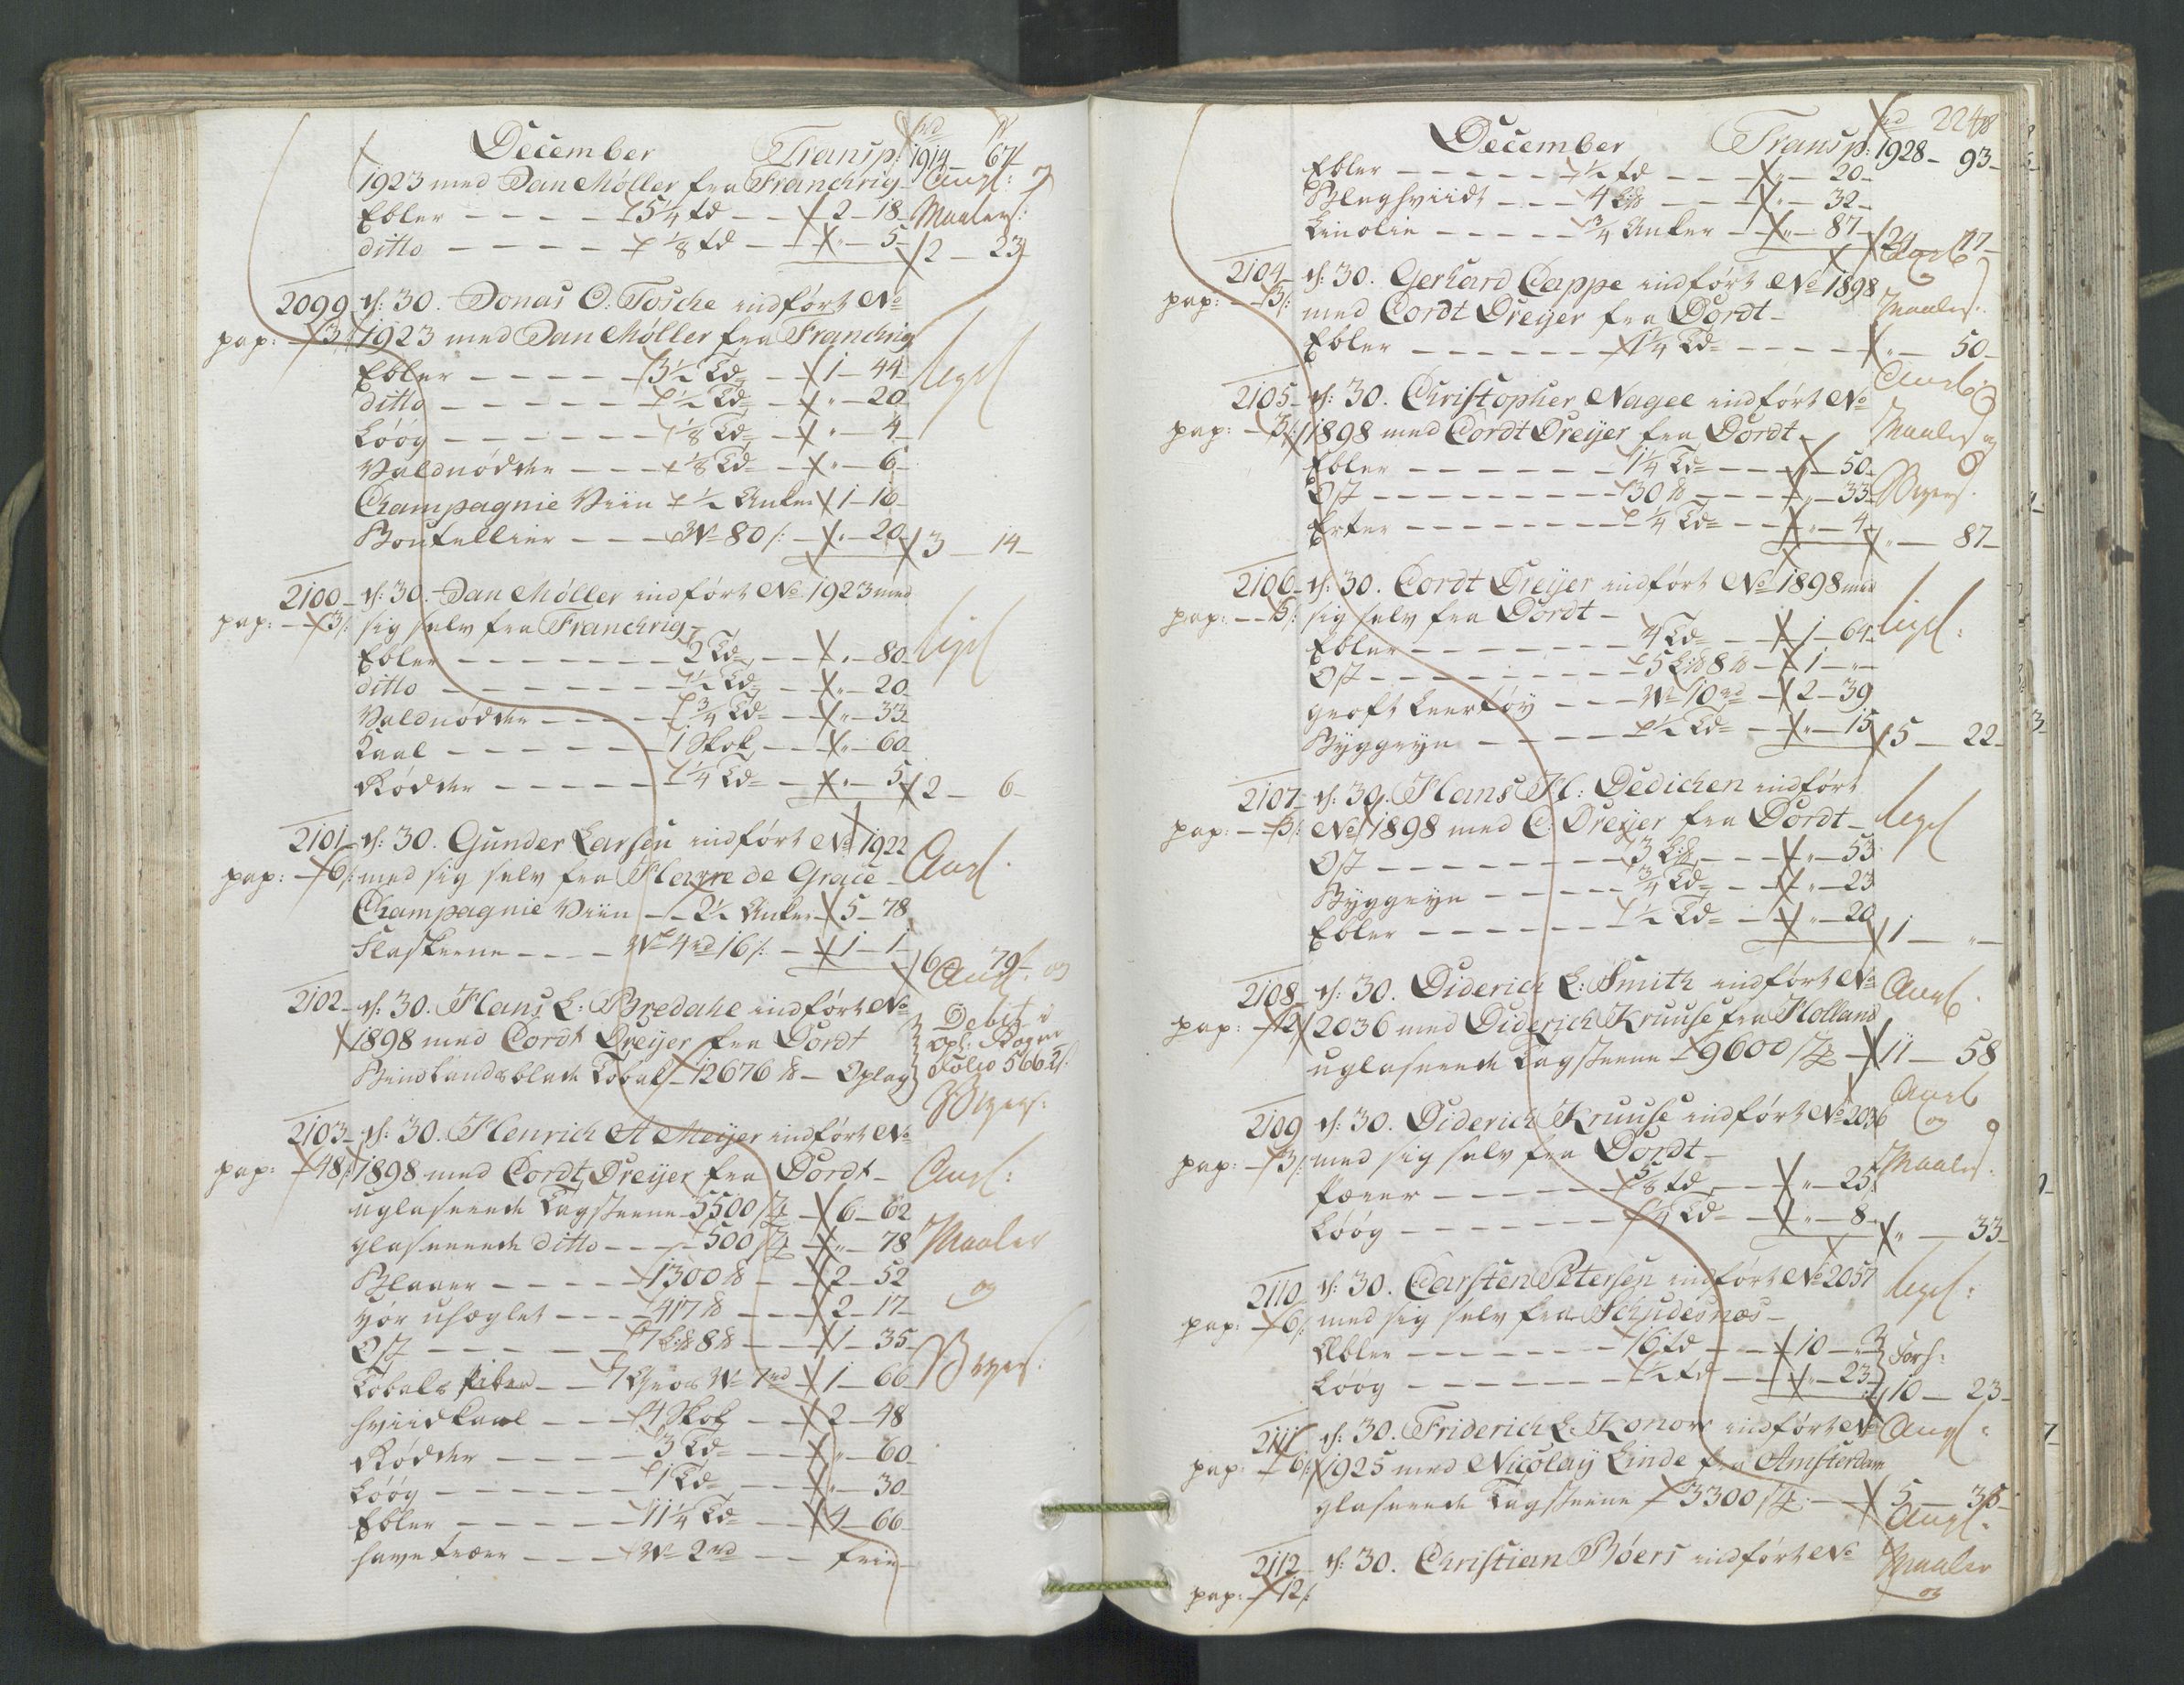 December Transp: 1914 - 67
1923 med Dan Møller fra Franchrig Angl: og
Ebler - - - - 5¼ td - - 2 - 18 Maalers:
ditto - - - - ⅛ td - - " - 5 - 2 - 23
2099 d: 30. Jonas C. Tosche indført No
pap: - 3/: 1923 med Dan Møller fra Franchrig
Ebler - - - - 3½ Td - 1 - 44 ligel
ditto - - - - ½ Td - " - 20
Löög - - - - ⅛ Td - " - 4
Valdnødder - - - ⅛ Td - " - 6
Champagnie Viin ½ Anker 1 - 16
Boutellier - - - W 80/: - " - 20 3 - 14
2100 d: 30. Dan Møller indført No 1923 med
pap: - 3/: sig selv fra Franchrig ligel
Ebler - - - - 2 Td - " - 80
ditto - - - - ½ Td - " - 20
Valdnødder - - - ¾ Td - " - 33
Kaal - - - - 1 Skok - " - 60
Rødder - - - - ¼ Td - " - 5 2 - 6
2101 d: 30. Gunder Larsen indført No 1922 Angl
pap: - 6/: med sig selv fra Havre de Grace
Champagnie Viin - 2½ Anker 5 - 78
Flaskerne - - - W 4 rd 16/: - 1 - 1 6 - 79
2102 d: 30. Hans L: Bredahl indført No Angl: og
1898 med Cordt Dreyer fra Dordt Debit i
Opl: Bogen
Bindlandsblade Tobak 12676 ℔ - Oplag Folio 566
Veyers:
2103 d: 30. Henrich A Meyer indført No
pap: - 48/: 1898 med Cordt Dreyer fra Dordt Angl:
uglaserede Tagsteene 5500 st 6 - 62
glaserede ditto - - 500 st " - 78 Maaler
Blaaer - - - - 1300 ℔ - 2 - 52 og
Hør uhæglet - - - 417 ℔ - 2 - 17
Ost - - - - 7 L℔ 8 ℔ - 1 - 35 Veyers:
Tobaks Piber - - 7 Gros W 7 rd 1 - 66
Hviidkaal - - - 4 Skok - 2 - 48
Rødder - - - - 3 Td - " - 60
Löög - - - - 1 Td - " - 30
Ebler - - - - 11¼ Td - 4 - 66
Havetræer - - - W 2 rd - - frie
224
December Transp: 1928 - 93
Ebler - - - - ½ td - - " - 20
Bleghviidt - - - 4 L℔ - - " - 32
Linolie - - - - ¾ Anker - " - 87 - 20 - 17
2104 d: 30. Gerhard Cappe indført No 1898 Angl og
pap: - 3/: med Cordt Dreyer fra Dordt Maalers:
Ebler - - - - 1¼ Td - - - " - 50
2105 d: 30. Christopher Nagel indført No Angl:
pap: - 3/: 1898 med Cordt Dreyer fra Dordt Maalers og
Ebler - - - - 1¼ Td - - " - 50
Ost - - - - 30 ℔ - - " - 33 Veyers:
Erter - - - - ¼ Td - - " - 4 " - 87
2106 d: 30. Cordt Dreyer indført No 1898 med
pap: - 3/: sig selv fra Dordt ligel:
Ebler - - - - 4 Td - - 1 - 64
Ost - - - - 5 L℔ 8 ℔ - 1 - "
groft Leertøy - - - W 10 rd - 2 - 39
Byggryn - - - - ½ Td - " - 15 5 - 22
2107 d: 30. Hans H: Dedichen indført
pap: - 3/: No 1898 med C: Dreyer fra Dordt ligel
Ost - - - - 3 L℔ - - " - 53
Byggryn - - - - ¾ Td - " - 23
Ebler - - - - ½ Td - " - 20 1 - "
2108 d: 30. Diderich L: Smith indført No Angl.
pap: - 12/: 2036 med Diderich Kruuse fra Holland
uglaserede Tagsteene 9600 st 11 - 58
2109 d: 30. Diderich Kruuse indført No 2036 Angl og
pap: - 3/: med sig selv fra Dordt Maalers:
Pærer - - - - ⅝ td - - " - 25
Löög - - - - ¼ Td - " - 8 " - 33
2110 d: 30. Carsten Petersen indført No 2057 ligel:
pap: - 6/: med sig selv fra Schudesnæs
Æbler - - - - 16 td - - 10 - " Forh:
Löög - - - - ½ td - - " - 23 10 - 23
2111 d: 30. Friderich L: Konow indført No Angl:
pap: - 6/: 1925 med Nicolay Linde fra Amsterdam
glaserede Tagsteene 3300 st - 5 - 35
Angl:
2112 d: 30. Christian Böers indført No Maaler
pap: - 12/: og